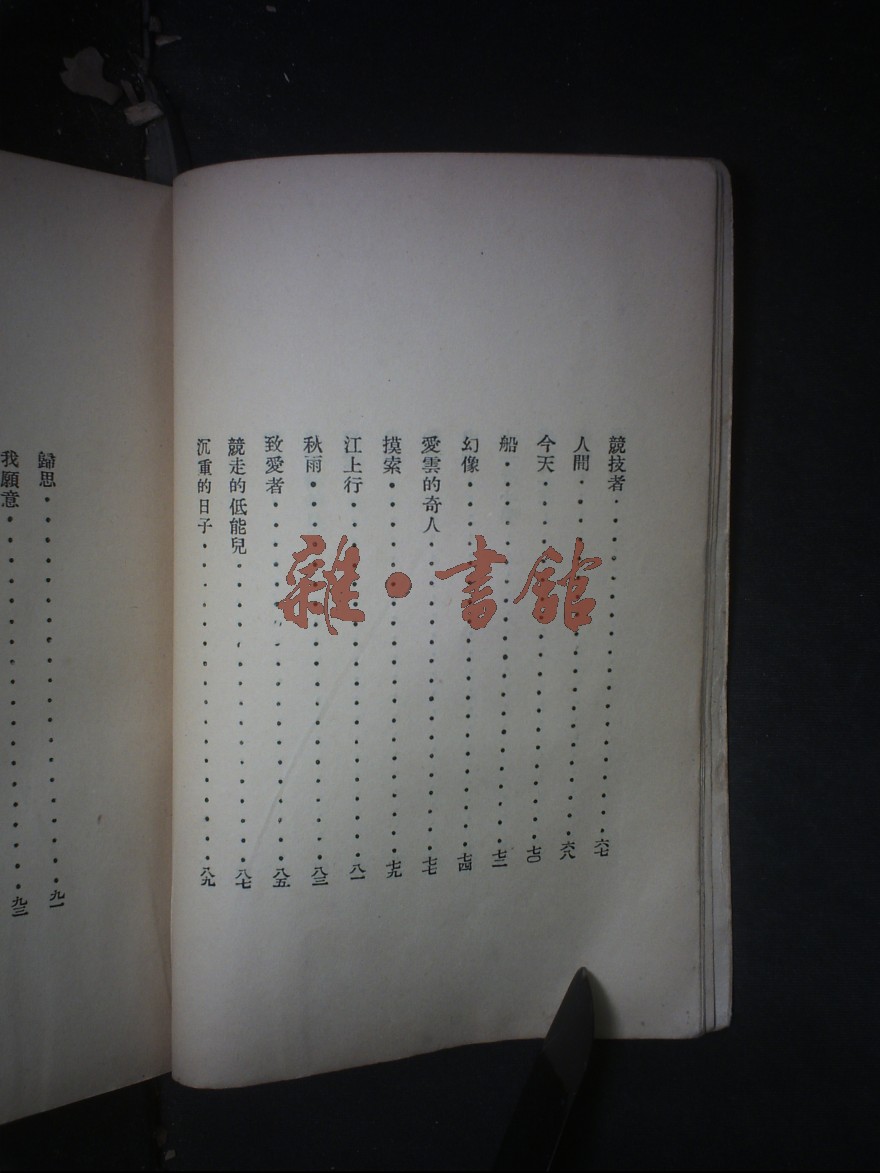 競技者⋯⋯六七
人間⋯⋯六八
今天⋯⋯七〇
船⋯⋯七二
幻像⋯⋯七四
愛雲的奇人⋯⋯七七
摸索⋯⋯七九
江上行⋯⋯八一
秋雨⋯⋯八三
致愛者⋯⋯八五
競走的低能兒⋯⋯八七
沉重的日子⋯⋯八九
歸思⋯⋯九一
我願意⋯⋯九三
雜·書館